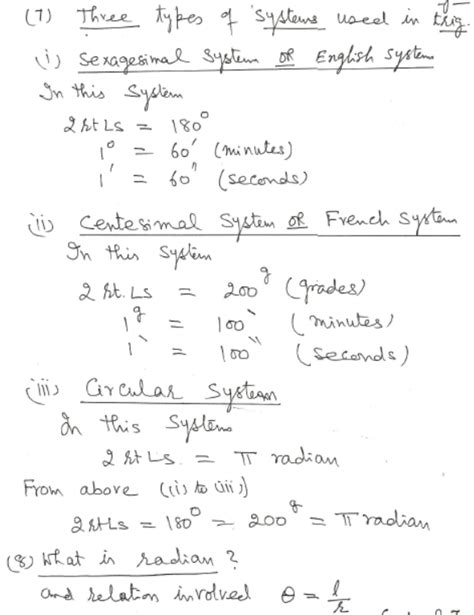 (7) Three types of systems used in trig.
(i) Sexagesimal System OR English System
In this System
2 rt Ls = 180°
1° = 60' (minutes)
1' = 60" (seconds)
(ii) Centesimal System OR French System
In this System
2 rt. Ls = 200ᵍ (grades)
1ᵍ = 100‵ (minutes)
1‵ = 100‶ (seconds)
(iii) Circular System
In this System
2 rt Ls. = π radian
From above ((i) to (iii))
2 rt Ls = 180° = 200ᵍ = π radian
(8) What is radian ?
and relation involved θ = l/r